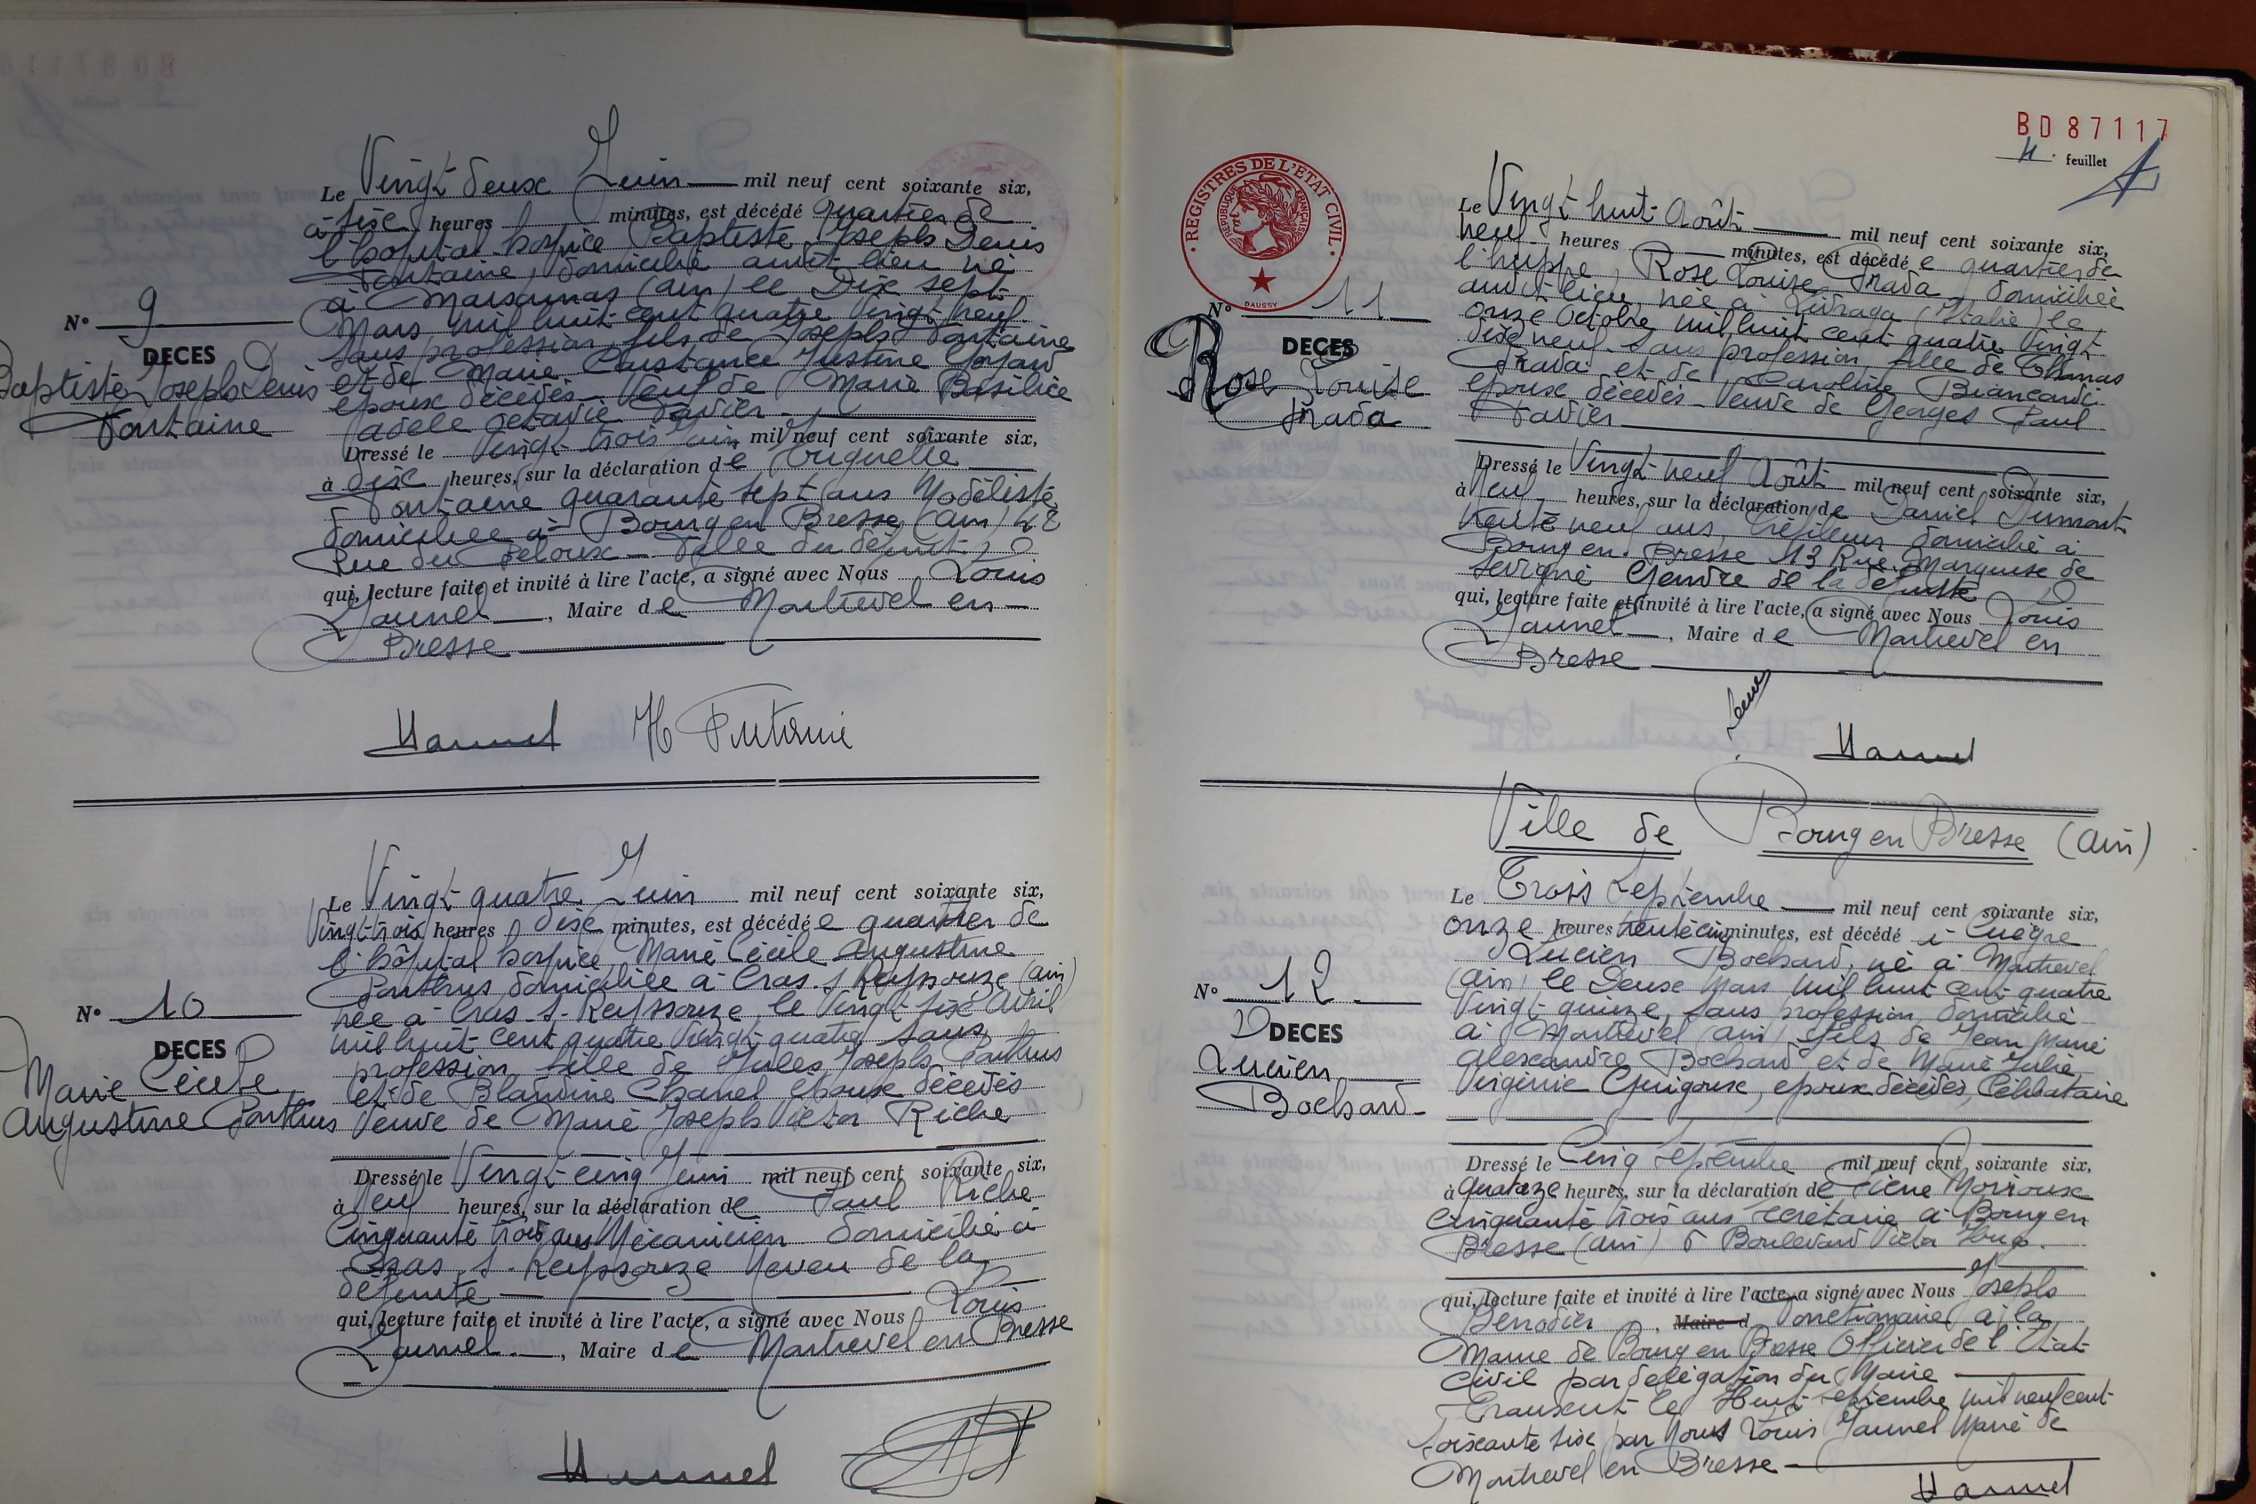 Le Vingt deux Juin mil neuf cent soixante six,
à six heures minutes, est décédé quartier de
l'hôpital-hospice Baptiste Joseph Denis
Fontaine, domicilié audit lieu né
à Marsonnas (Ain) le Dix sept
Mars mil huit cent quatre Vingt neuf
sans profession, fils de Joseph Fontaine
et de Marie Constance Justine
époux décédés. Veuf de Marie Basilice
Adèle Octavie Favier
N° 9
DECES
Baptiste Joseph Denis
Fontaine
Dressé le Vingt trois Juin mil neuf cent soixante six,
à dix heures, sur la déclaration de Huguette
Fontaine quarante sept ans Modéliste
domiciliée à Bourg en Bresse (Ain) 42
Rue du Peloux - Fille du défunt
qui, lecture faite et invité à lire l'acte, a signé avec Nous Louis
Jaunel, Maire de Montrevel en
Bresse
Jaunel H Fontaine
Le Vingt quatre Juin mil neuf cent soixante six,
Vingt-trois heures dix minutes, est décédée quartier de
l'hôpital hospice, Marie Cécile Augustine
Ponthus domiciliée à Cras s/ Reyssouze (Ain)
née à Cras s. Reyssouze, le Vingt six Avril
mil huit cent quatre Vingt quatre, sans
profession, fille de Jules Joseph Ponthus
et de Blandine Chanel époux décédés
Veuve de Marie Joseph Victor Riche
N° 10
DECES
Marie Cécile
Augustine Ponthus
Dressé le Vingt-cinq Juin mil neuf cent soixante six,
à Neuf heures, sur la déclaration de Paul Riche
Cinquante trois ans Mécanicien domicilié à
Cras s. Reyssouze Neveu de la
défunte
qui, lecture faite et invité à lire l'acte, a signé avec Nous Louis
Jaunel, Maire de Montrevel en Bresse
Jaunel
BD 87117
4. feuillet
REGISTRES DE L'ETAT CIVIL
REPUBLIQUE FRANÇAISE
DAUSSY
Le Vingt huit Août mil neuf cent soixante six,
Neuf heures minutes, est décédée quartier de
l'huppe, Rose Louise Prada, domiciliée
audit lieu, née à Livraga (Italie) le
onze Octobre mil huit cent quatre Vingt
dix neuf sans profession, fille de Thomas
Prada et de Caroline Biancardi
époux décédés - Veuve de Georges Paul
Favier
N° 11
DECES
Rose Louise
Prada
Dressé le Vingt-neuf Août mil neuf cent soixante six,
à Neuf heures, sur la déclaration de Daniel Dumont
trente neuf ans, Tréfileur domicilié à
Bourg en Bresse 13 Rue Marquise de
Sévigné Gendre de la défunte
qui, lecture faite et invité à lire l'acte, a signé avec Nous Louis
Jaunel, Maire de Montrevel en
Bresse
Jaunel
Ville de Bourg en Bresse (Ain)
Le Trois Septembre mil neuf cent soixante six,
onze heures trente cinq minutes, est décédé
Lucien Bochard, né à Montrevel
(Ain) le Deux Mars mil huit cent quatre
Vingt quinze, sans profession domicilié
à Montrevel (Ain) fils de Jean Marie
Alexandre Bochard et de Marie Julie
Virginie Guigoux, époux décédés, Célibataire
N° 12
DECES
Lucien
Bochard
Dressé le Cinq Septembre mil neuf cent soixante six,
à quatorze heures, sur la déclaration de Irène
cinquante trois ans secrétaire à Bourg en
Bresse (Ain) 6 Boulevard Victor Hugo.
qui, lecture faite et invité à lire l'acte, a signé avec Nous Joseph
Berrodier, Maire d fonctionnaire à la
Mairie de Bourg en Bresse Officier de l'Etat-
Civil par délégation du Maire
Transcrit le Huit Septembre mil neuf cent
soixante six par Nous Louis Jaunel Maire de
Montrevel en Bresse
Jaunel